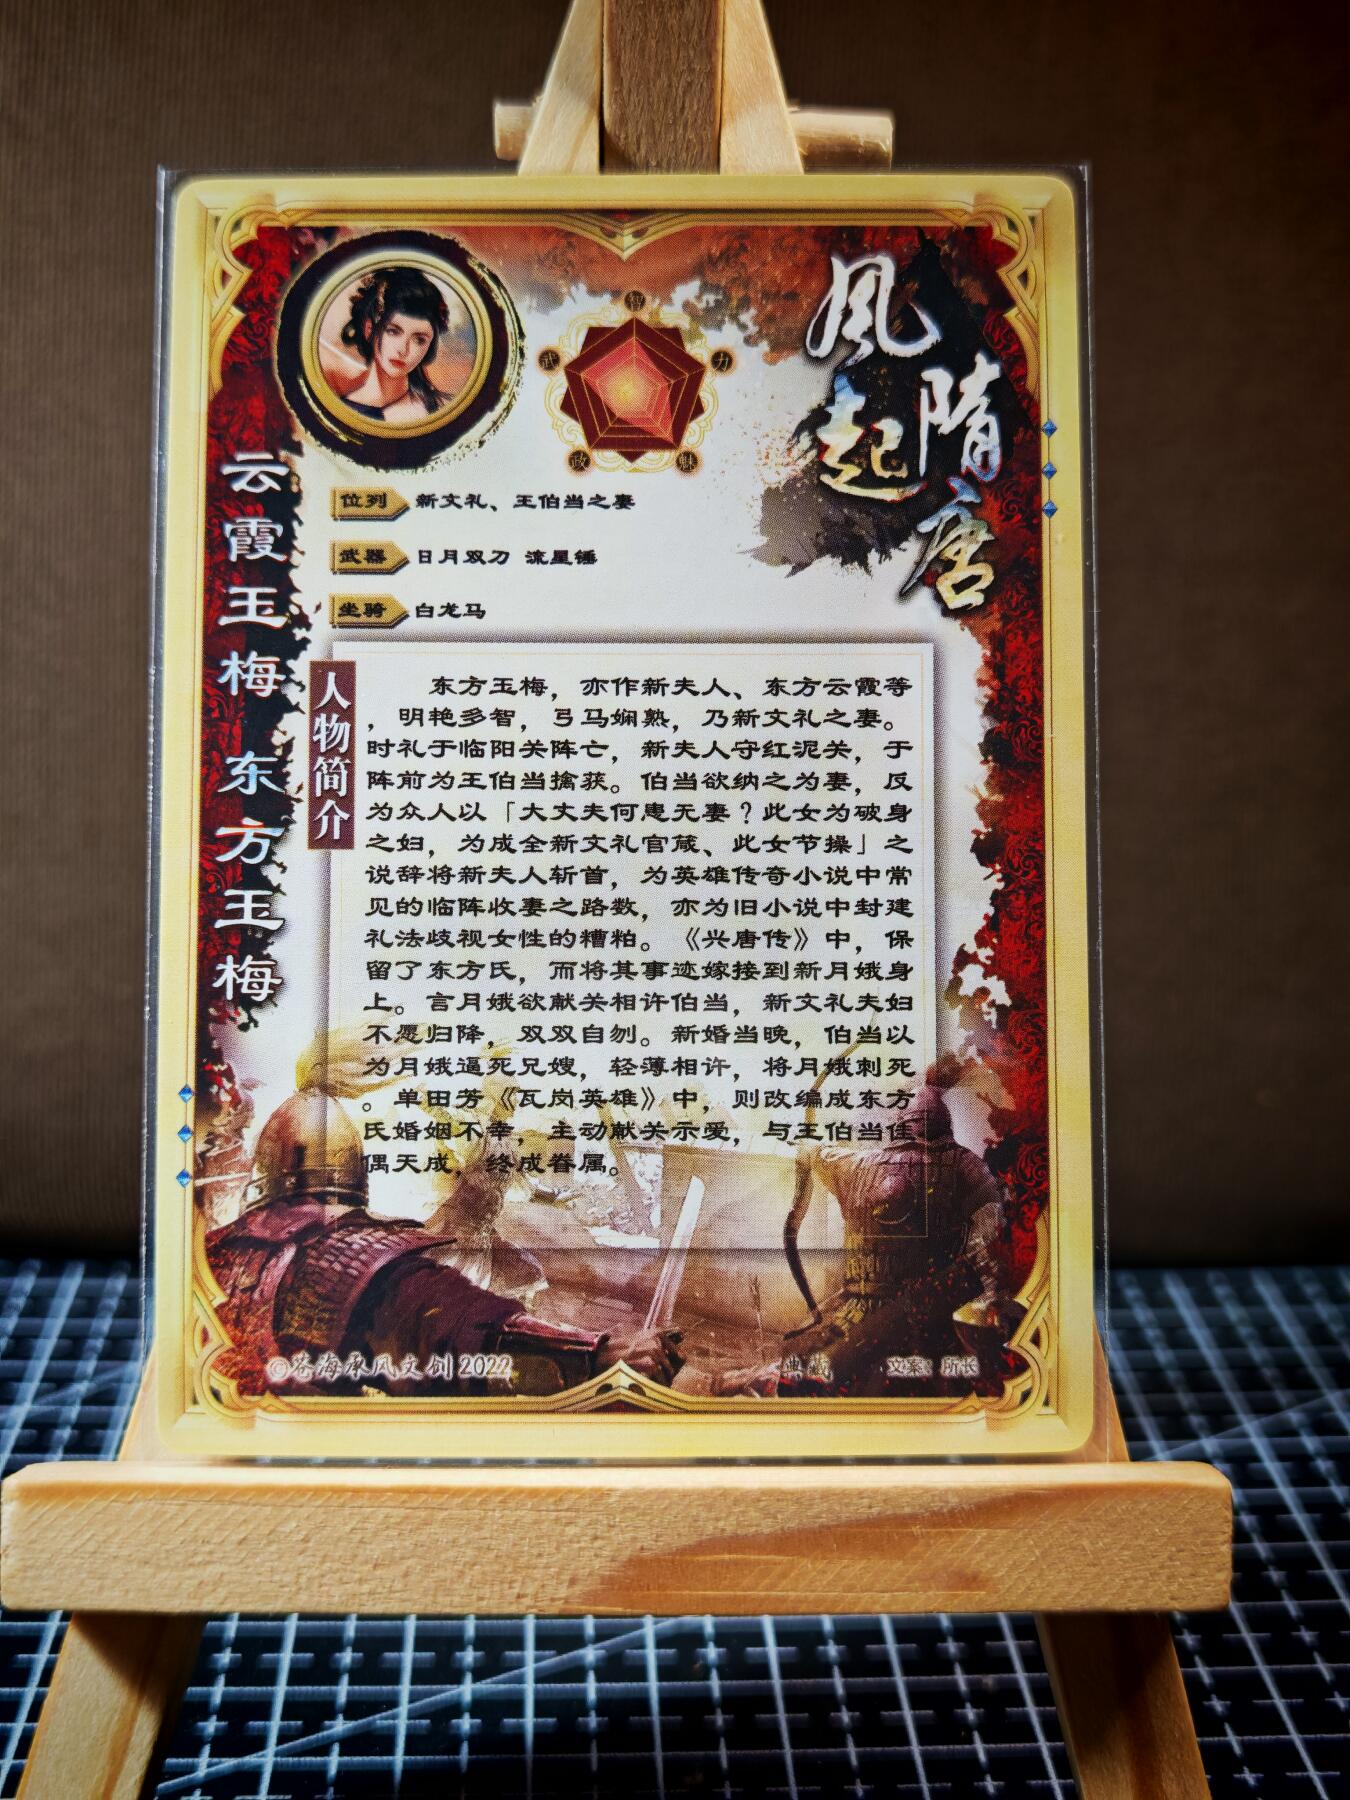 智
武
力
政
魅
風起
隋唐
云霞玉梅 东方玉梅
位列 新文礼、王伯当之妻
武器 日月双刀 流星锤
坐骑 白龙马
人物简介
东方玉梅，亦作新夫人、东方云霞等
，明艳多智，弓马娴熟，乃新文礼之妻。
时礼于临阳关阵亡，新夫人守红泥关，于
阵前为王伯当擒获。伯当欲纳之为妻，反
为众人以「大丈夫何患无妻？此女为破身
之妇，为成全新文礼官箴、此女节操」之
说辞将新夫人斩首，为英雄传奇小说中常
见的临阵收妻之路数，亦为旧小说中封建
礼法歧视女性的糟粕。《兴唐传》中，保
留了东方氏，而将其事迹嫁接到新月娥身
上。言月娥欲献关相许伯当，新文礼夫妇
不愿归降，双双自刎。新婚当晚，伯当以
为月娥逼死兄嫂，轻薄相许，将月娥刺死
。单田芳《瓦岗英雄》中，则改编成东方
氏婚姻不幸，主动献关示爱，与王伯当佳
偶天成，终成眷属。
©苍海承风文创 2022
典藏
文案：所长